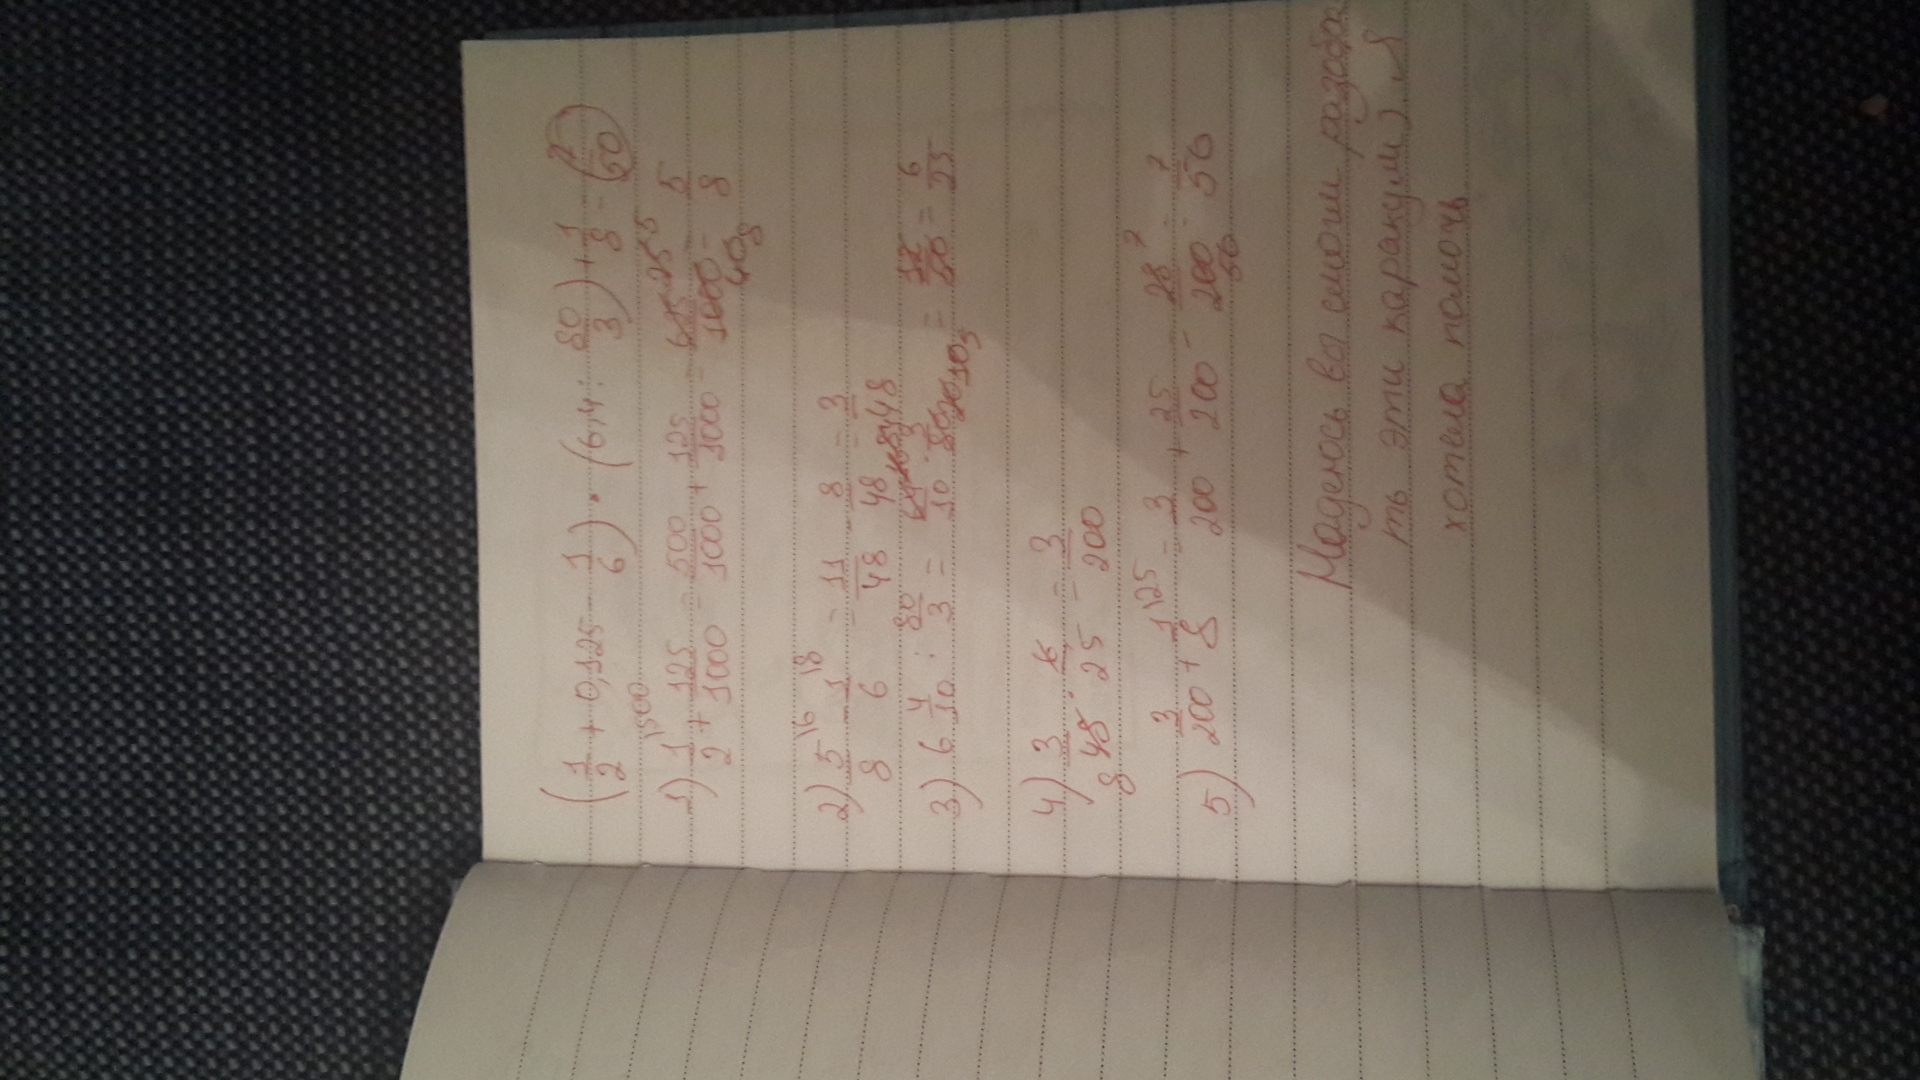 (1/2 + 0,125 - 1/6) · (6,4 : 80/3) + 1/8 = 7/50
1) 1/2 + 125/1000 = 500/1000 + 125/1000 = 625/1000 = 5/8
2) 5/8 - 1/6 = 11/48 - 8/48 = 3/48
3) 6 4/10 : 80/3 = 64/10 · 3/80 = 12/50 = 6/25
4) 3/48 · 6/25 = 3/200
5) 3/200 + 1/8 = 3/200 + 25/200 = 28/200 = 7/50
Надеюсь вы смогли разобра
ть эти каракули). Я
хотела помочь